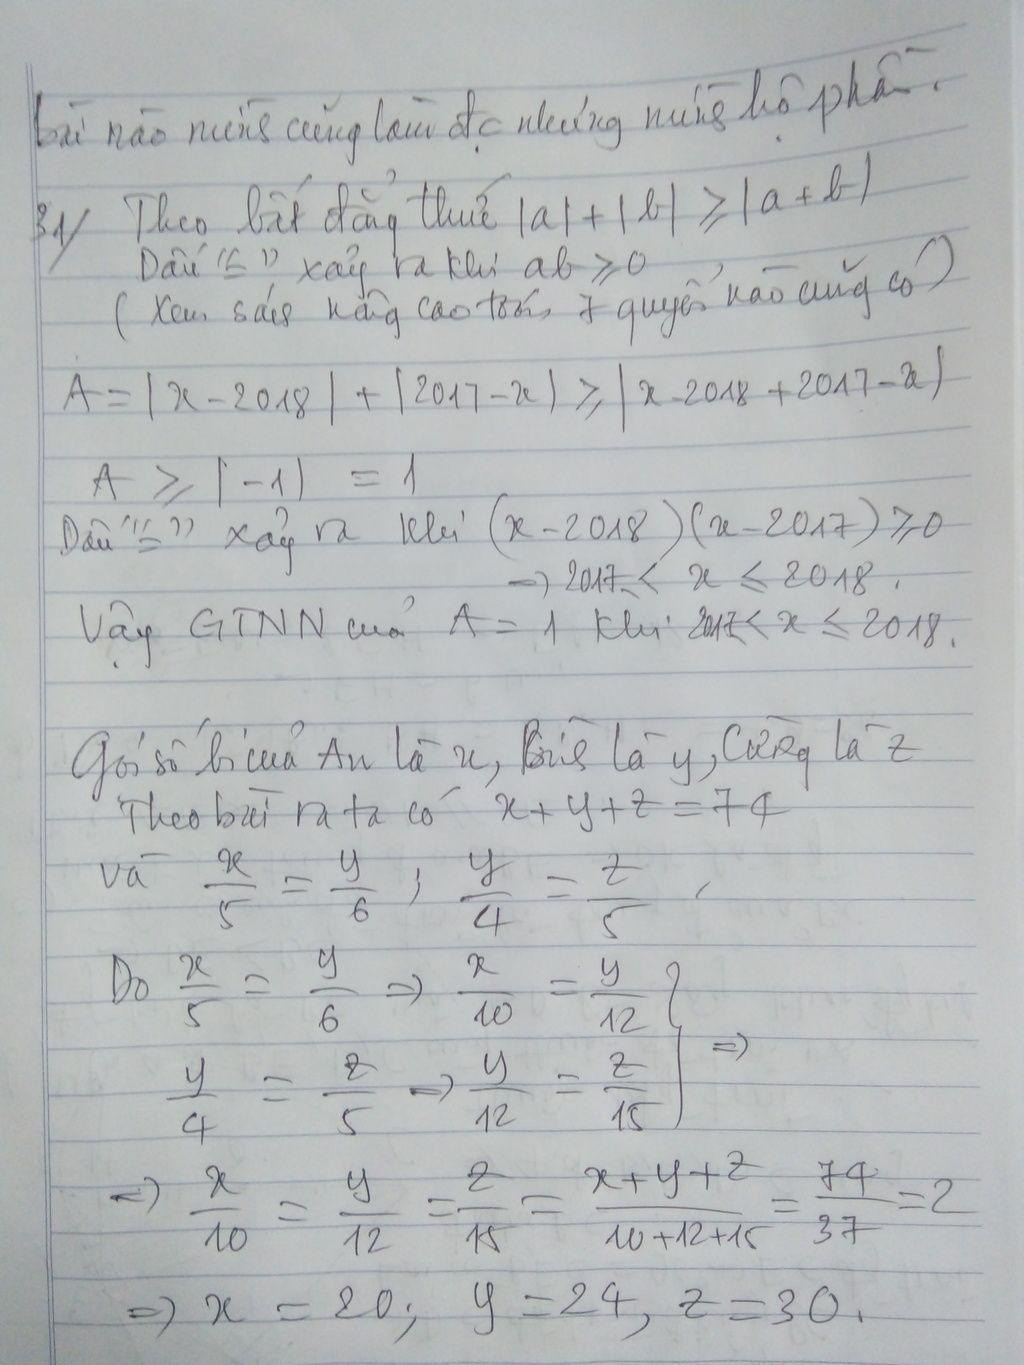 bài nào mình cũng làm đc nhưng mình hộ phần.
31/ Theo bất đẳng thức |a| + |b| ≥ |a + b|
Dấu "=" xảy ra khi ab ≥ 0
( Xem sách nâng cao toán 7 quyển nào cũng có )
A = | x - 2018 | + | 2017 - x | ≥ | x - 2018 + 2017 - x |
A ≥ | -1 | = 1
Dấu "=" xảy ra khi (x - 2018)(x - 2017) ≥ 0
=> 2017 ≤ x ≤ 2018.
Vậy GTNN của A = 1 khi 2017 ≤ x ≤ 2018.
Gọi số bi của An là x, Bình là y, Cường là z
Theo bài ra ta có x + y + z = 74
và x/5 = y/6 ; y/4 = z/5 ,
Do x/5 = y/6 => x/10 = y/12 }
y/4 = z/5 => y/12 = z/15 } =>
=> x/10 = y/12 = z/15 = x+y+z/10+12+15 = 74/37 = 2
=> x = 20; y = 24, z = 30.